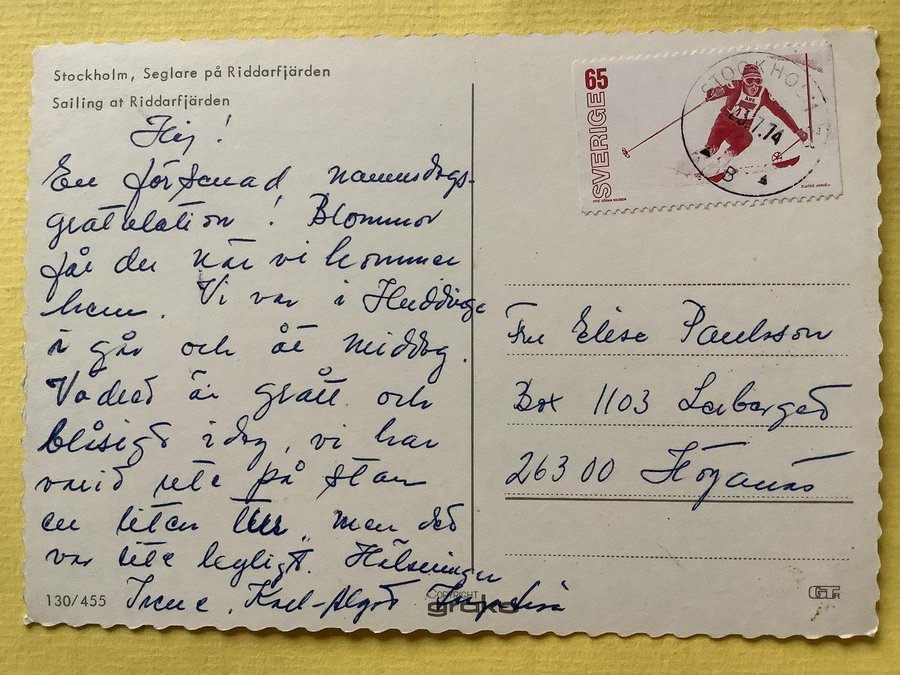 Stockholm, Seglare på Riddarfjärden
Sailing at Riddarfjärden
Hej!
En försenad namnsdags-
gratulation! Blommor
får du när vi kommer
hem. Vi var i Huddinge
i går och åt middag.
Vädret är grått och
blåsigt idag, vi har
varit ute på stan
en liten tur, men det
var inte byligt. Hälsningar
Irene, Karl-Algot
130/455
COPYRIGHT
grako
SVERIGE 65
ÅRE
STOCKHOLM
7.74
B
Fru Elise Paulsson
Box 1103 Lerberget
263 00 Höganäs